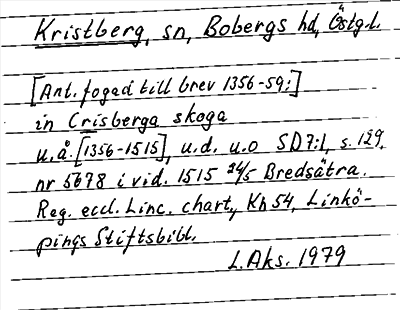 Kristberg, sn, Bobergs hd, Östg.l.
[Ant. fogad till brev 1356-59:]
in Crisberga skoga
u.å. [1356-1515], u.d. u.o SD7:1, s. 129,
nr 5678 i vid. 1515 24/5 Bredsätra.
Reg. eccl. Linc. chart., Kh 54, Linkö-
pings Stiftsbibl.
L. Aks. 1979